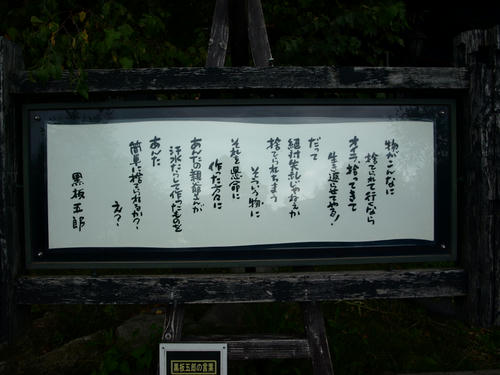 物がこんなに
捨てられて行くなら
オイラ、拾ってきて
生き返らせてやる!
だって
絶対失礼じゃねえか
捨てられちまう
そういう物に
それを懸命に
作った方々に
あんたの親父さんが
汗水たらして作ったものを
あんた
簡単に捨てられるか?
え?
黒板五郎
黒板五郎の言葉